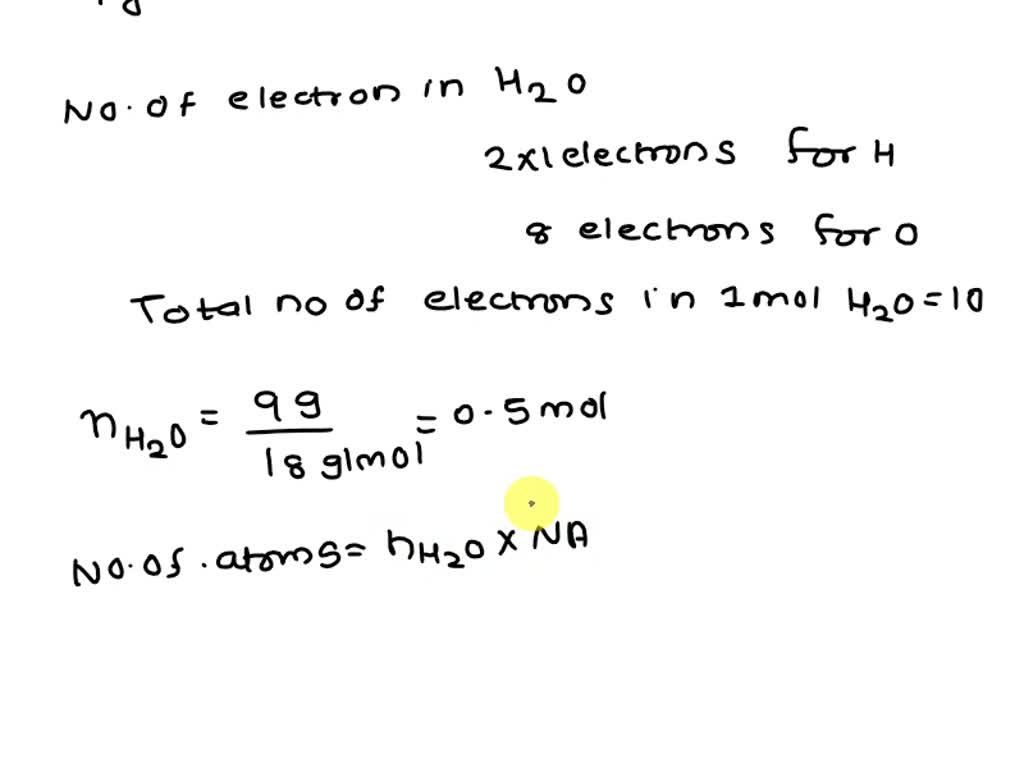 No. of electron in H2O
2x1 electrons for H
8 electrons for O
Total no of electrons in 1mol H2O = 10
nH2O = 9g / 18 g/mol = 0.5 mol
No. of. atoms = nH2O x NA